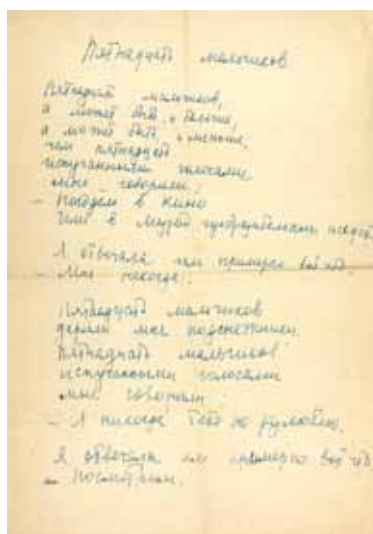 Пятнадцать мальчиков
Пятнадцать мальчиков,
а может быть, и больше,
а может быть, и меньше,
чем пятнадцать
испуганными голосами
мне говорили:
– Пойдем в кино
или в музей изобразительных искусств.
Я отвечала им примерно вот что:
– Мне некогда.
Пятнадцать мальчиков
дарили мне подснежники.
Пятнадцать мальчиков
испуганными голосами
мне говорили:
– Я никогда тебя не разлюблю.
Я отвечала им примерно вот что:
– Посмотрим.